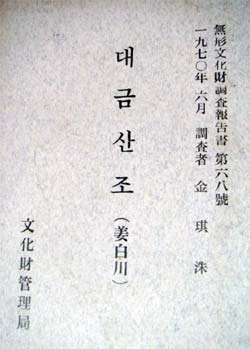 無形文化財調査報告書 第六八號
一九七〇年 六月 調査者 金琪洙
대금산조
(姜白川)
文化財管理局